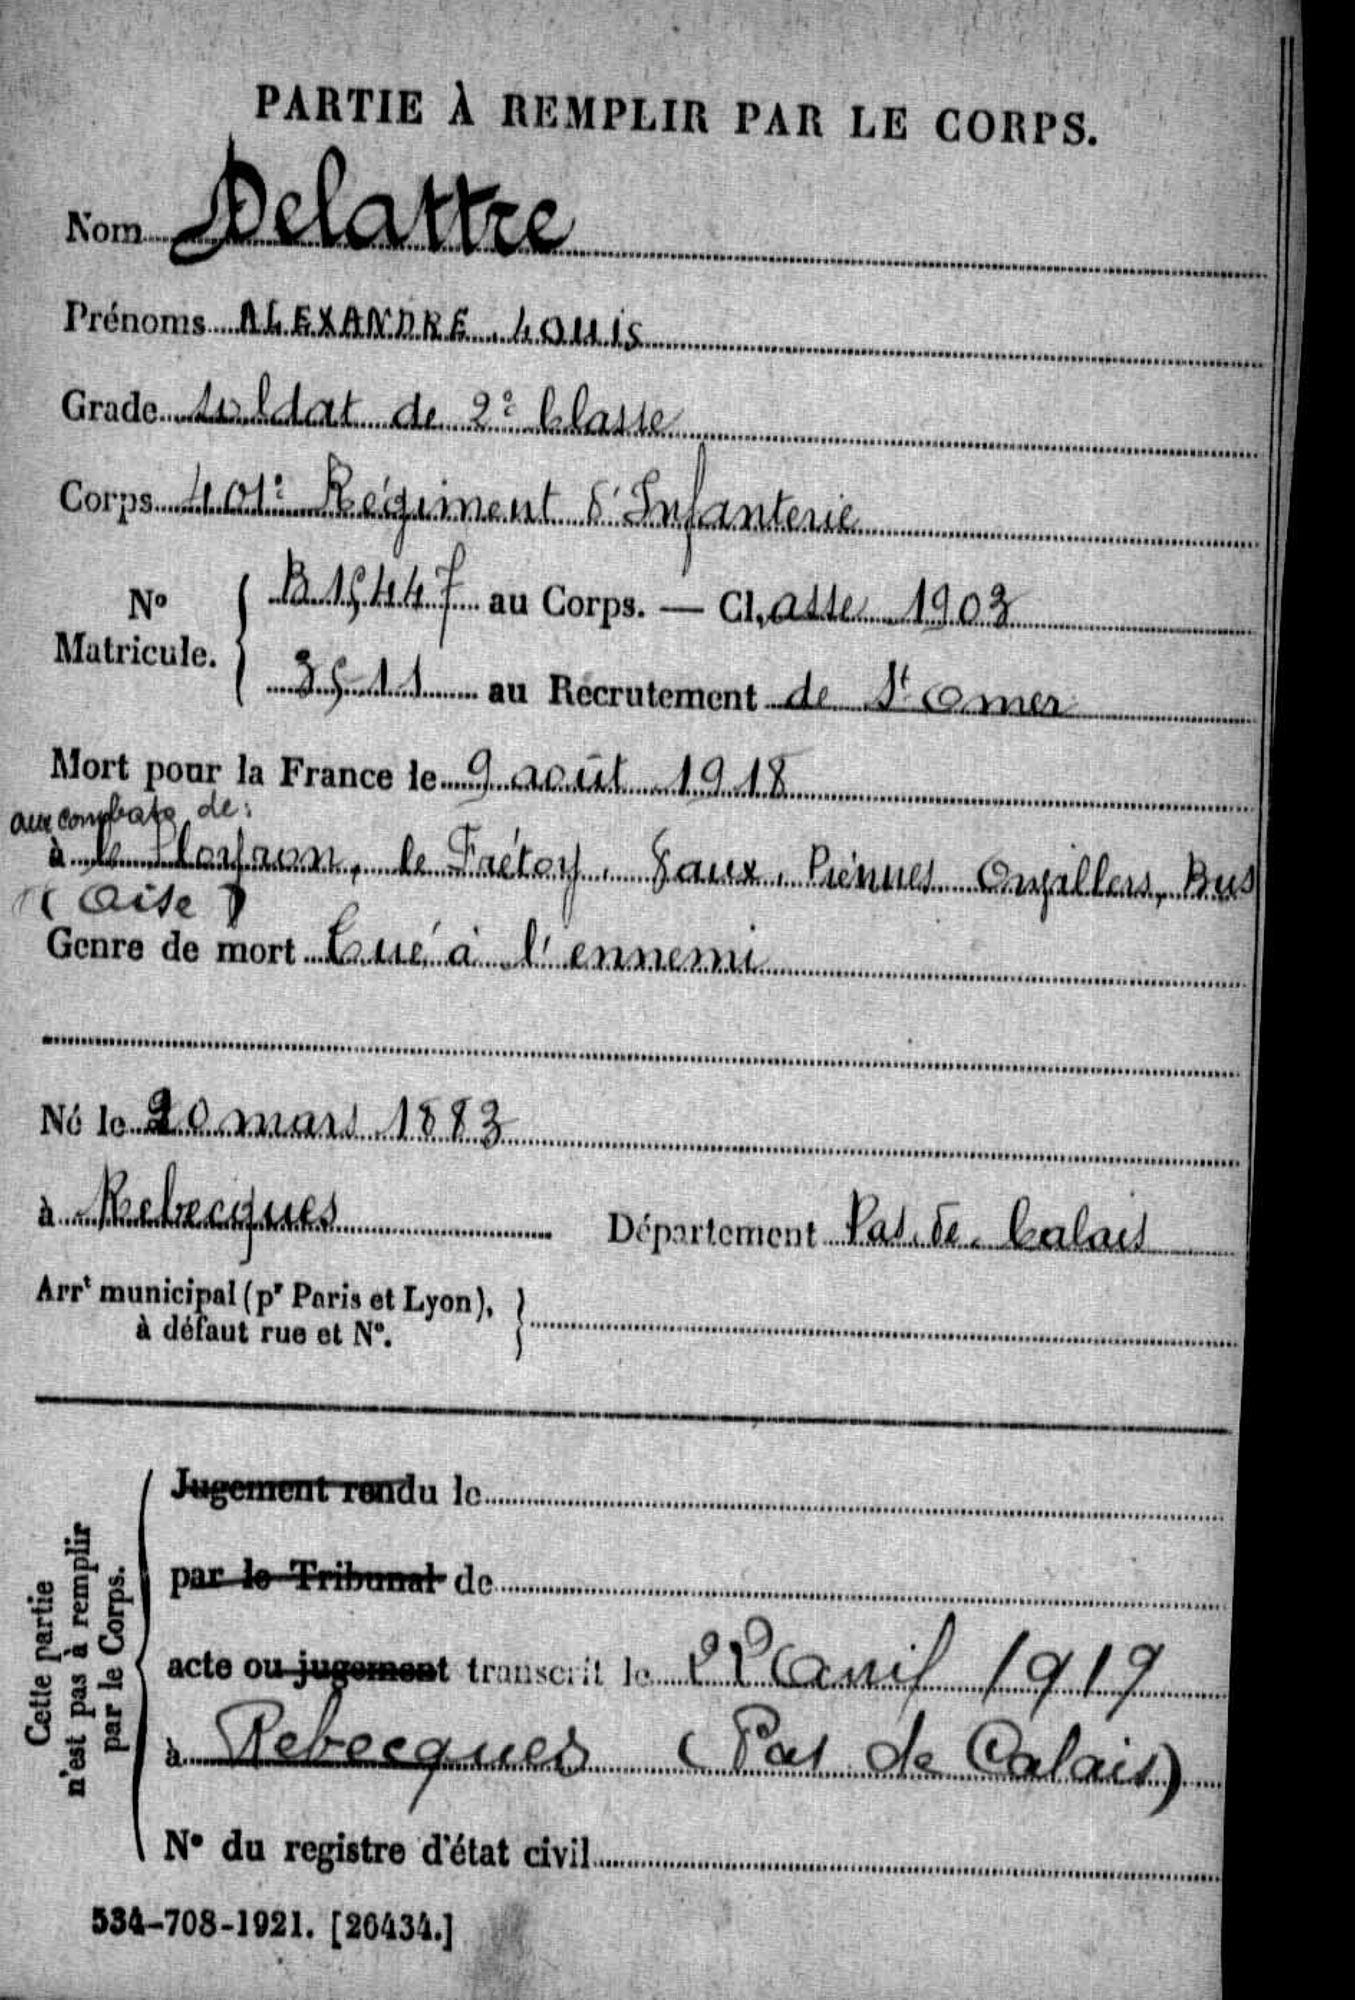 PARTIE À REMPLIR PAR LE CORPS.
Nom Delattre
Prénoms ALEXANDRE Louis
Grade soldat de 2e Classe
Corps 401e Régiment d'Infanterie
No Matricule. { B 15447 au Corps. — Cl.asse 1903
3511 au Recrutement de St Omer
Mort pour la France le 9 août 1918
aux combats de:
à le Ployron, le Frétoy, Vaux, Piennes Onvillers, Bus
(Oise)
Genre de mort Tué à l'ennemi
Né le 20 mars 1883
à Rebecques Département Pas de Calais
Arrt municipal (pr Paris et Lyon), }
à défaut rue et No.
Cette partie n'est pas à remplir par le Corps.
Jugement rendu le
par le Tribunal de
acte ou jugement transcrit le 22 Avril 1919
à Rebecques (Pas de Calais)
No du registre d'état civil
534-708-1921. [26434.]